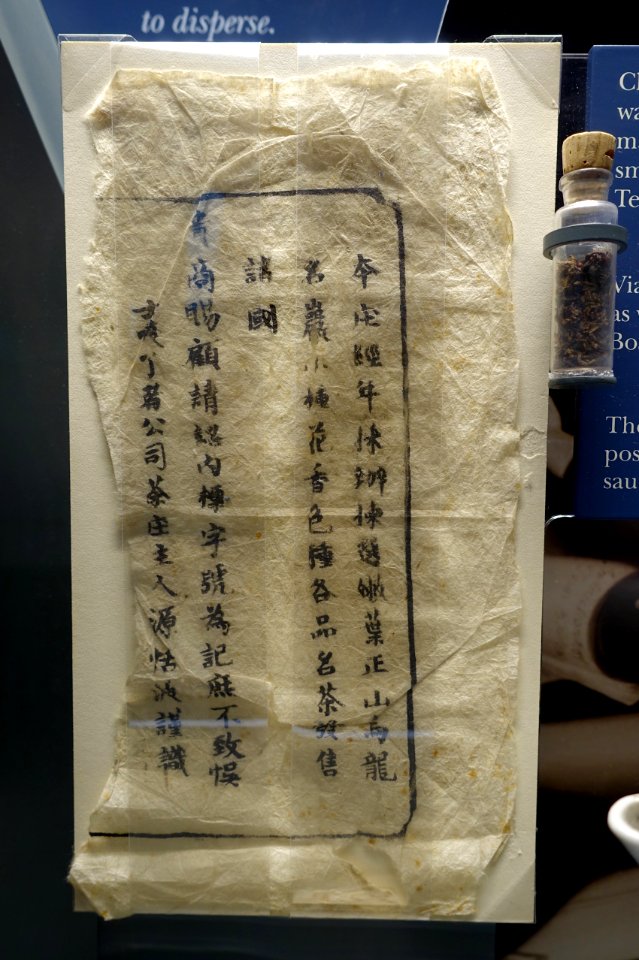 to disperse.
本店經年採辦揀選嫩葉正山烏龍
名巖小種花香色種各品名茶發售
諸國
商賜顧請認內標字號為記庶不致悞
公司茶庄主人源謹識
wa
ma
sm
Te
Via
as
Bo
The
pos
sau